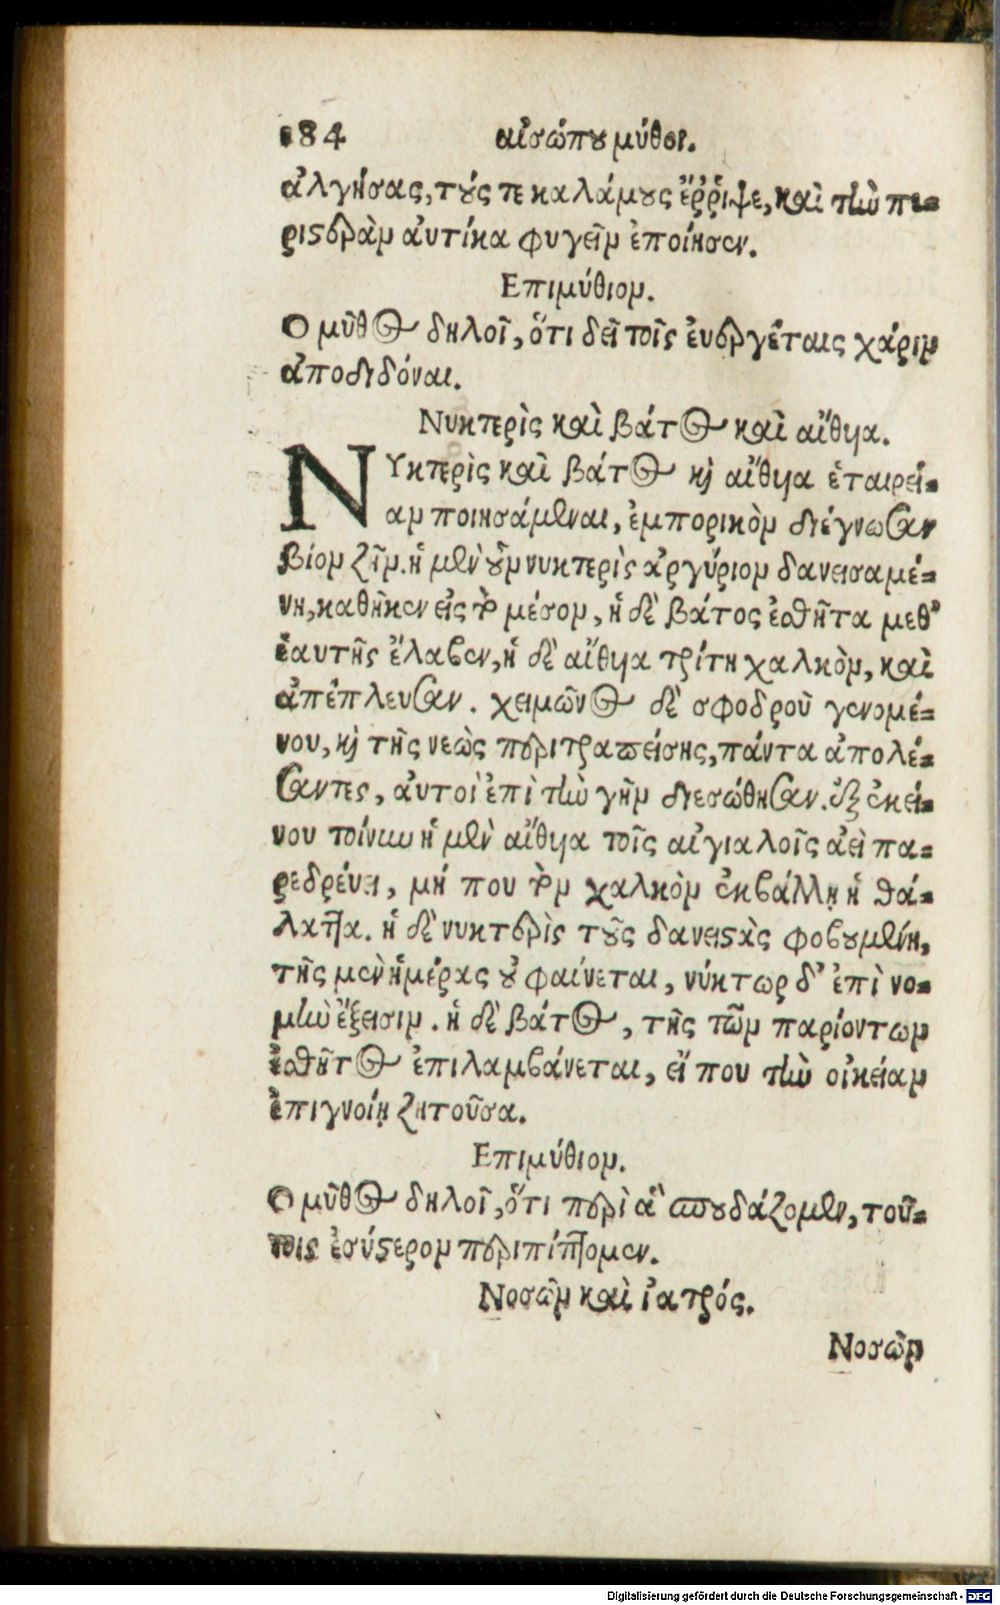 184 αἰσώπου μύθοι.
ἀλγήσας, τούς τε καλάμους ἔῤῥιψε, καὶ τὴν πε-
ριστερὰν ἀυτίκα φυγεῖν ἐποίησεν.
Επιμύθιον.
Ο μῦθος δηλοῖ, ὅτι δεῖ τοῖς ἐυεργέταις χάριν
ἀποδιδόναι.
Νυκτερὶς καὶ βάτος καὶ αἴθυα.
ΝΥκτερὶς καὶ βάτος καὶ αἴθυα ἑταιρεί-
αν ποιησάμεναι, ἐμπορικὸν διέγνωσαν
βίον ζῆν. ἡ μὲν οὖν νυκτερὶς ἀργύριον δανεισαμέ-
νη, καθῆκεν εἰς τὸ μέσον, ἡ δὲ βάτος ἐσθῆτα μεθ'
ἑαυτῆς ἔλαβεν, ἡ δὲ αἴθυα τρίτη χαλκὸν, καὶ
ἀπέπλευσαν. χειμῶνος δὲ σφοδροῦ γενομέ-
νου, καὶ τῆς νεὼς περιτραπείσης, πάντα ἀπολέ-
σαντες, ἀυτοὶ ἐπὶ τὴν γῆν διεσώθησαν. ἐξ ἐκεί-
νου τοίνυν ἡ μὲν αἴθυα τοῖς αἰγιαλοῖς ἀεὶ πα-
ρεδρέυει, μή που τὸν χαλκὸν ἐκβάλλῃ ἡ θά-
λαττα. ἡ δὲ νυκτερὶς τοὺς δανειστὰς φοβουμένη,
τῆς μὲν ἡμέρας οὐ φαίνεται, νύκτωρ δ' ἐπὶ νο-
μὴν ἔξεισιν. ἡ δὲ βάτος, τῆς τῶν παρίοντων
ἐσθῆτος ἐπιλαμβάνεται, εἴ που τὴν οἰκείαν
ἐπιγνοίη ζητοῦσα.
Επιμύθιον.
Ο μῦθος δηλοῖ, ὅτι περὶ ἃ σπουδάζομεν, τού-
τοις ἐσύστερον περιπίπτομεν.
Νοσῶν καὶ ἰατρός.
Νοσῶν
Digitalisierung gefördert durch die Deutsche Forschungsgemeinschaft - DFG